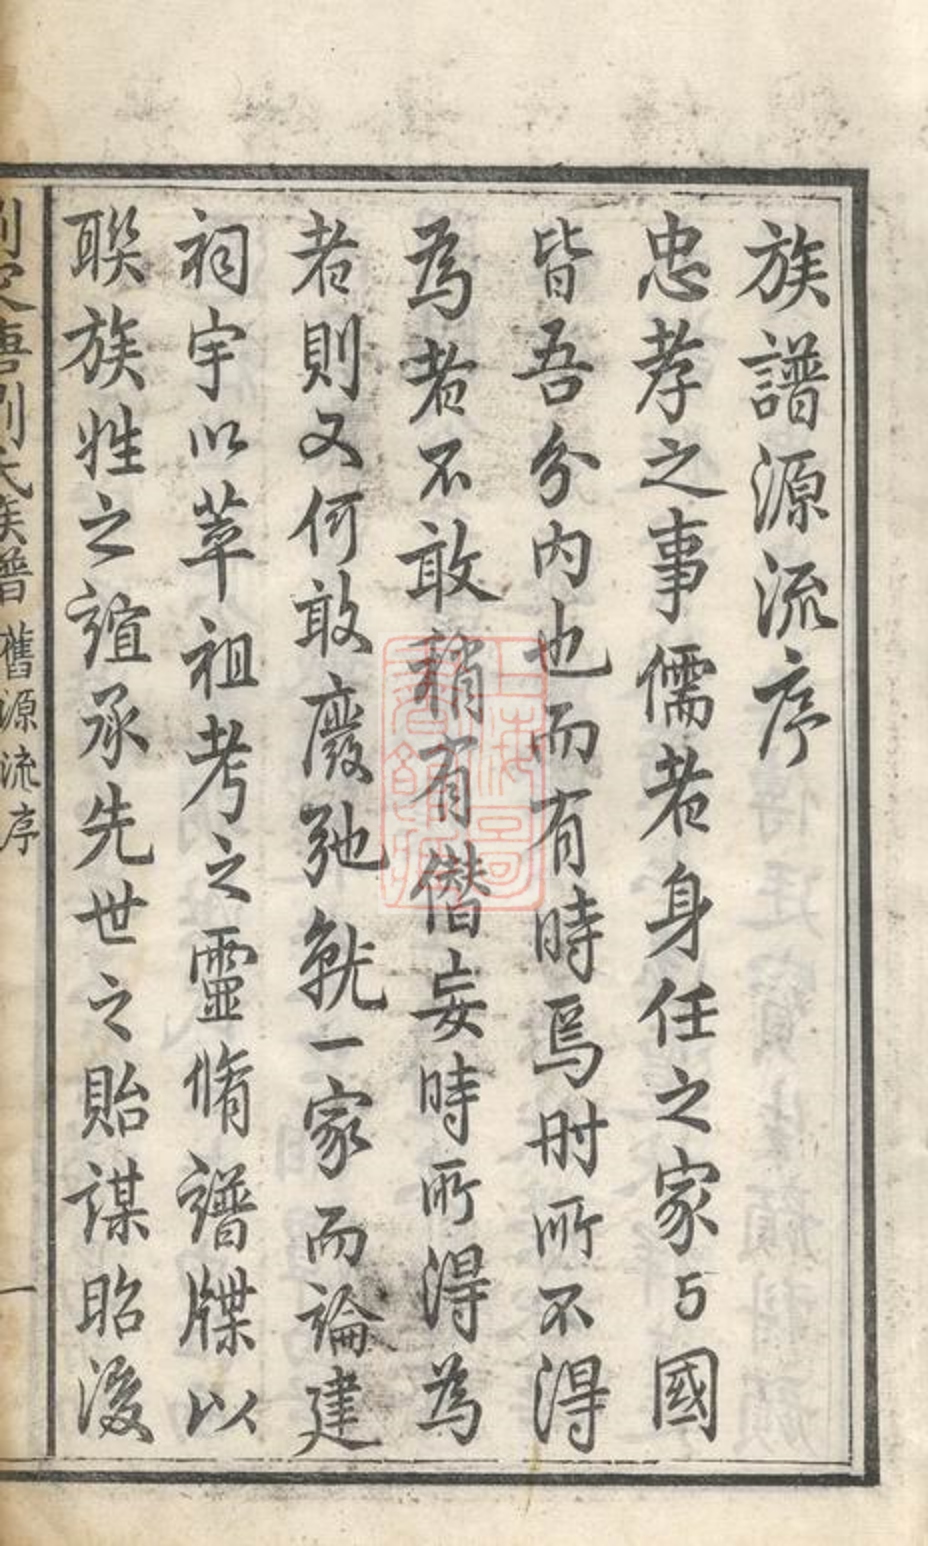 族譜源流序
忠孝之事儒者身任之家与國
皆吾分內也而有時焉时所不得
為者不敢稍有僭妄時所得為
者則又何敢廢弛就一家而論建
祠宇以萃祖考之靈脩譜牒以
聯族姓之誼承先世之貽謀昭後
劉氏族譜 舊源流序 一
上海圖書館藏